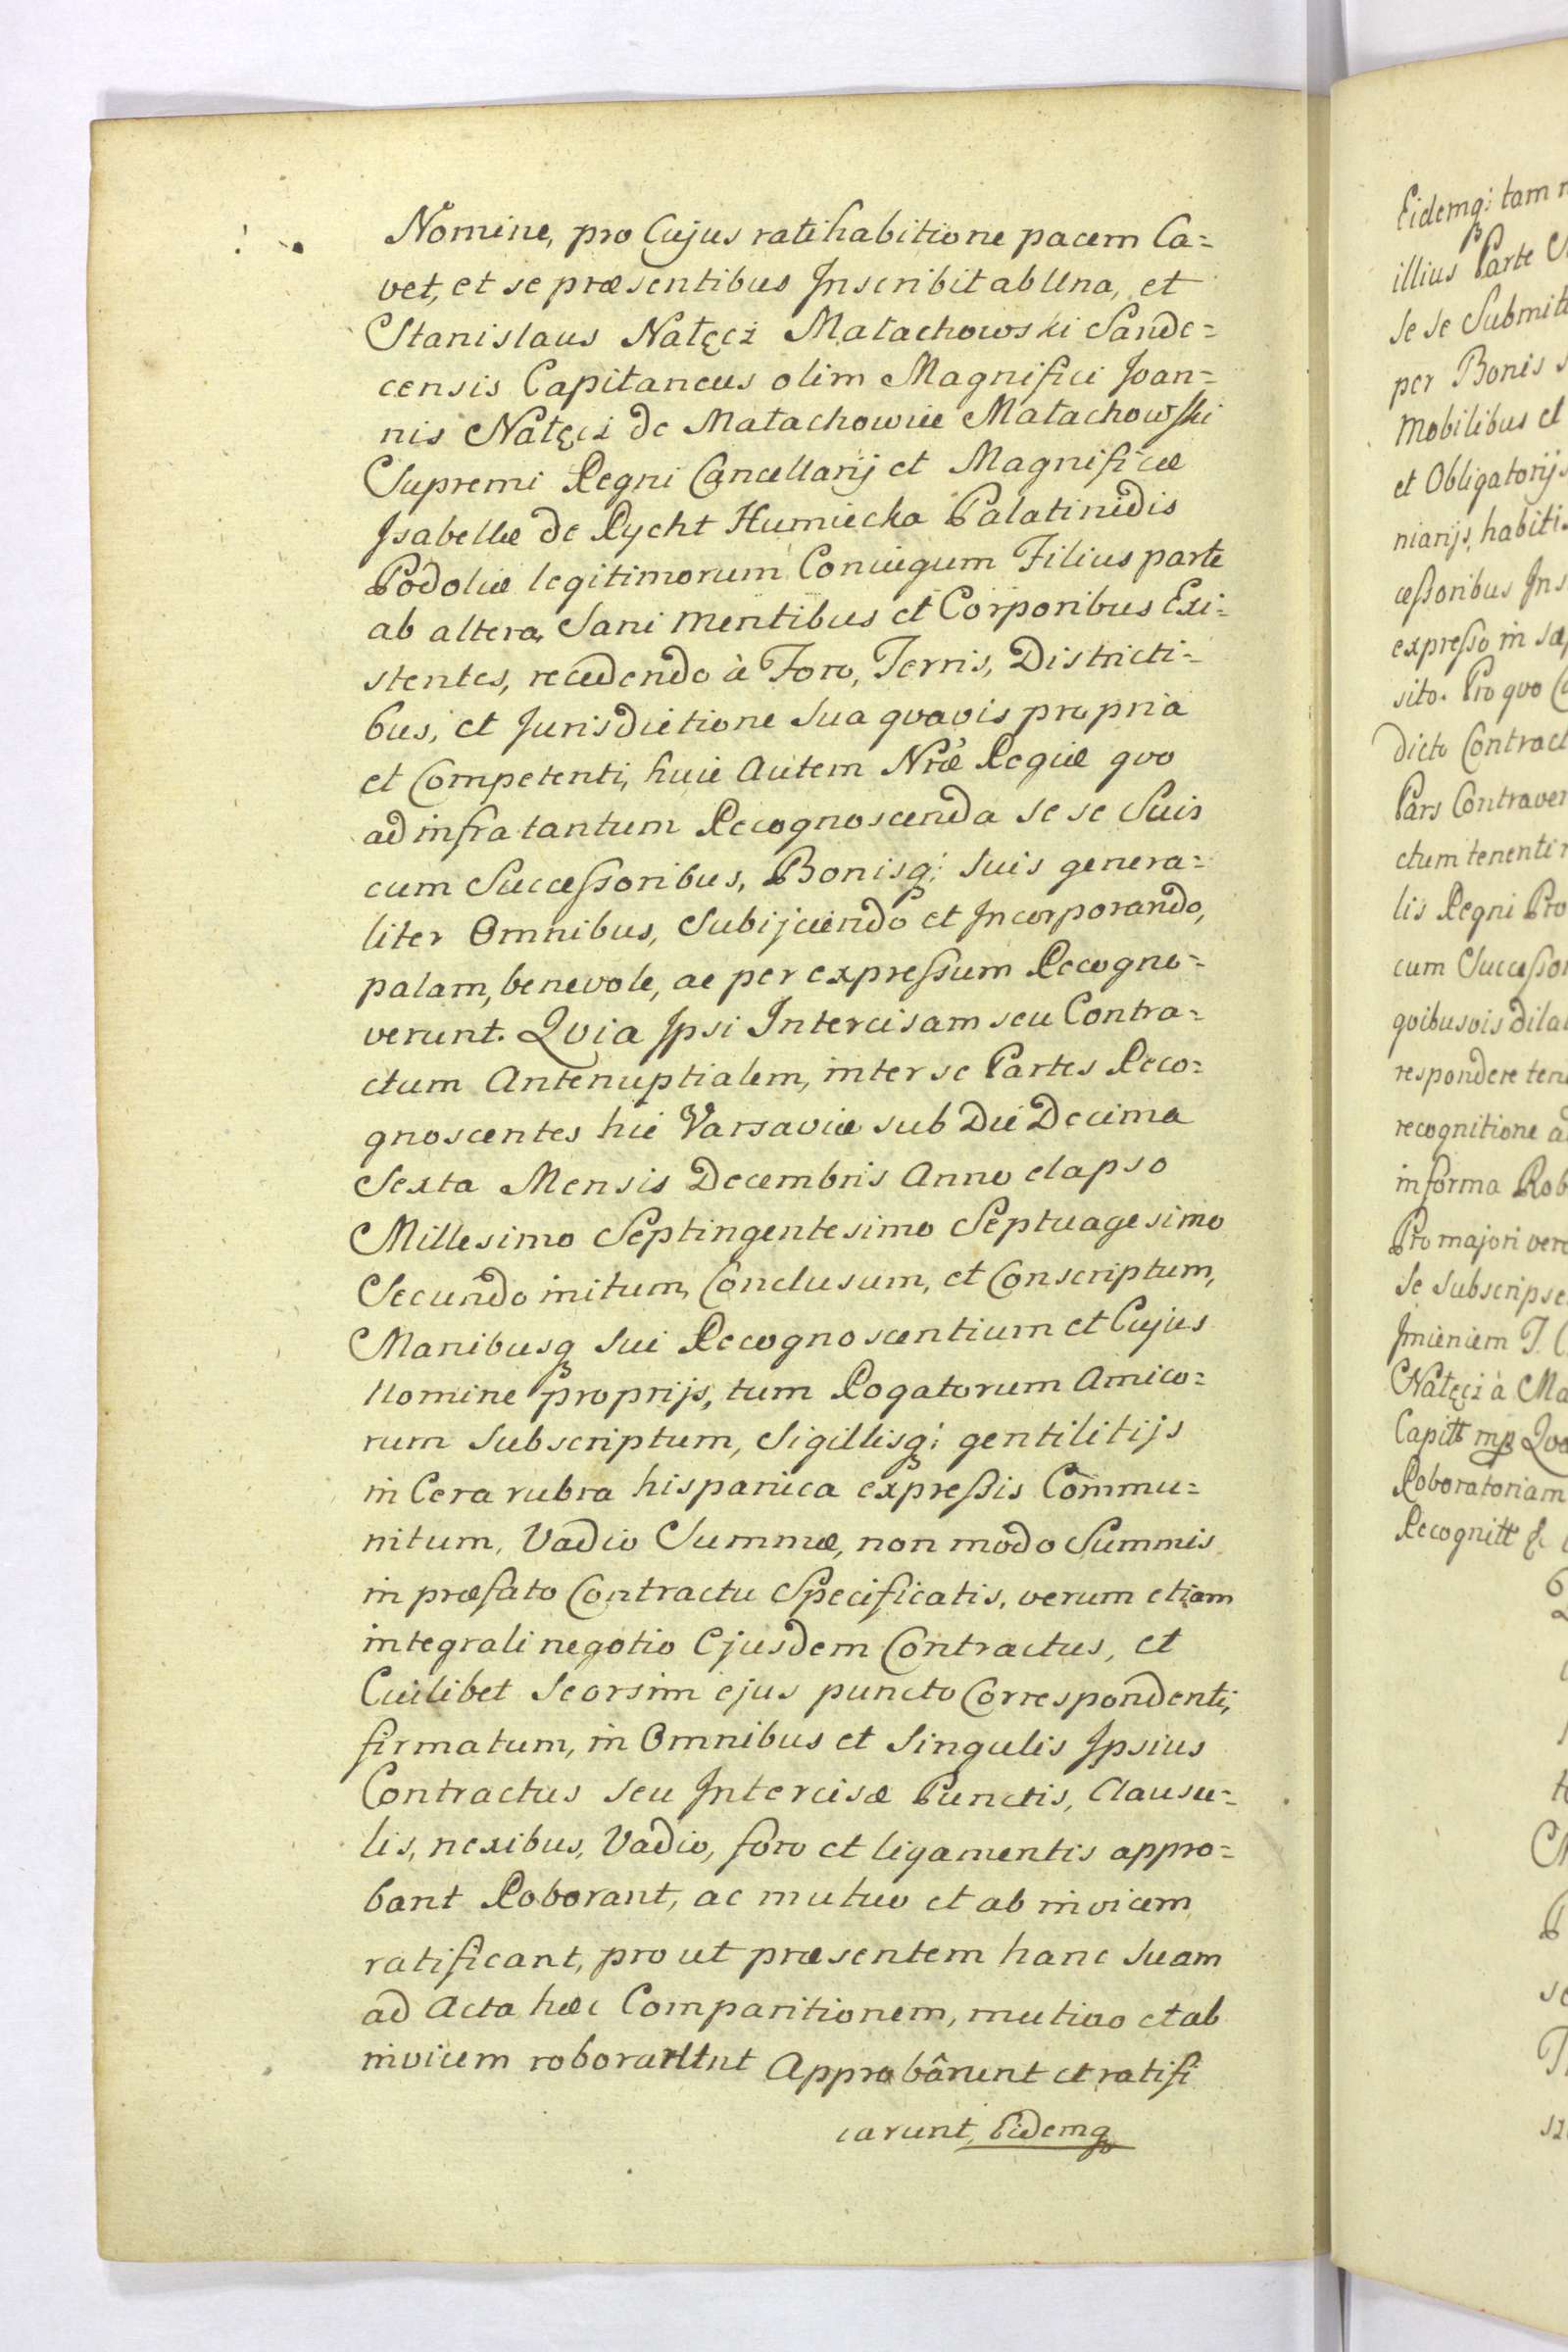 Nomine, pro Cujus ratihabitione pacem Ca=
vet, et se præsentibus Inscribit ab Una, et
Stanislaus Nałęcz Małachowski Sande=
censis Capitaneus olim Magnifici Joan=
nis Nałęcz de Małachowice Małachowski
Supremi Regni Cancellarij et Magnificæ
Isabellæ de Rycht Humiecka Palatinidis
Podoliæ legitimorum Conjugum Filius parte
ab altera, Sani mentibus et Corporibus Exi=
stentes, recedendo à Foro, Terris, Districti=
bus, et Jurisdictione Sua qvavis propria
et Competenti, huic autem Nræ Regiæ qvo
ad infra tantum Recognoscenda se se Suis
cum Successoribus, Bonisq; suis genera=
liter Omnibus, Subijciendo et Incorporando,
palam, benevole, ac per expressum Recogno=
verunt. Qvia Ipsi Intercisam seu Contra=
ctum Antenuptialem, inter se Partes Reco=
gnoscentes hic Varsaviæ sub Die Decima
Sexta Mensis Decembris Anno elapso
Millesimo Septingentesimo Septuagesimo
Secundo initum, Conclusum, et Conscriptum,
Manibusq sui Recognoscentium et Cujus
Nomine proprijs, tum Rogatorum Amico=
rum Subscriptum, Sigillisq; gentilitijs
in Cera rubra hispanica expressis Commu=
nitum, Vadio Summæ, non modo Summis
in præfato Contractu Specificatis, verum etiam
integrali negotio Ejusdem Contractus, et
Cuilibet Seorsim ejus puncto Correspondenti,
firmatum, in Omnibus et Singulis Ipsius
Contractus seu Intercisæ Punctis, Clausu=
lis, nexibus, Vadio, foro et ligamentis appro=
bant Roborant, ac mutuo et ab invicem
ratificant, pro ut præsentem hanc Suam
ad Acta hæc Comparitionem, mutuo et ab
invicem roborarunt Approbârunt et ratifi
carunt, Eidemq
Eidemq; tam
illius Parte
se se Submit
per Bonis
Mobilibus et
et Obligatorijs
niarijs, habiti
cessoribus Ins
expresso in
sito. Pro qvo
dicto Contract
Pars Contraven
ctum tenenti
lis Regni Pro
cum Successor
qvibusvis dila
respondere ten
recognitione
in forma Rob
Pro majori vero
se subscripse
Imieniem J.
Nałęcz à Ma
Capitt mp Qvo
Roboratoriam
Recognitt &